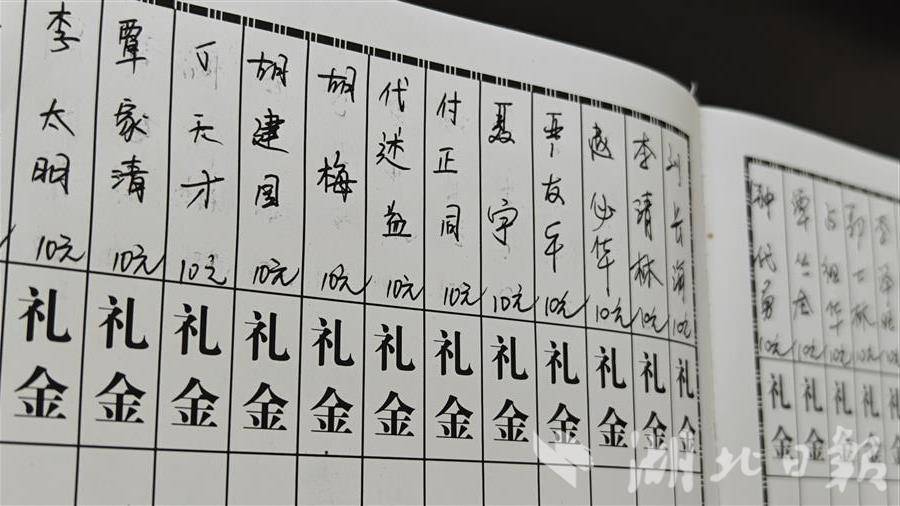 10元 礼金
10元 礼金
华 10元 礼金
覃 10元 礼金
钟代勇 10元 礼金
长 10元 礼金
李清林 10元 礼金
赵必华 10元 礼金
友年 10元 礼金
聂宇 10元 礼金
付正同 10元 礼金
代述益 10元 礼金
胡梅 10元 礼金
胡建国 10元 礼金
天才 10元 礼金
覃家清 10元 礼金
李太明 10元 礼金
湖北日报